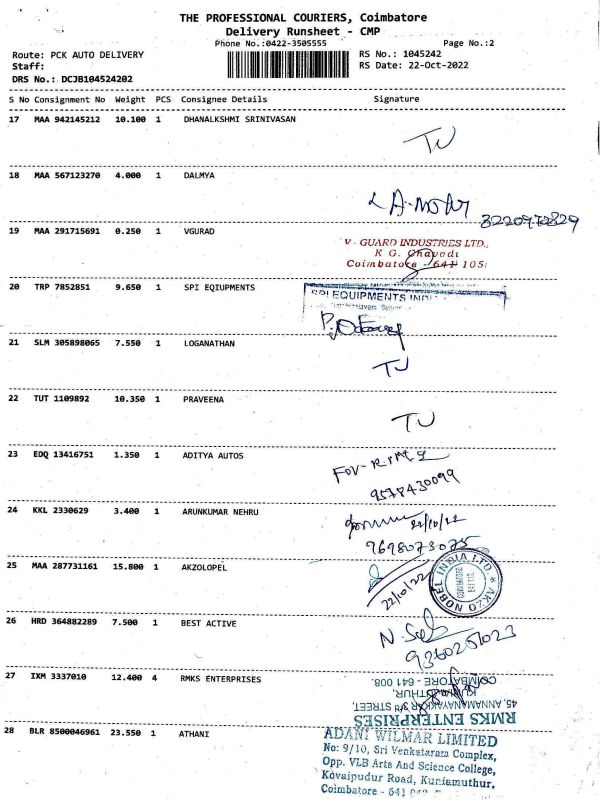 THE PROFESSIONAL COURIERS, Coimbatore
Delivery Runsheet - CMP
Phone No.:0422-3505555 Page No.:2
Route: PCK AUTO DELIVERY RS No.: 1045242
Staff: RS Date: 22-Oct-2022
DRS No.: DCJB104524202
S No Consignment No Weight PCS Consignee Details Signature
17 MAA 942145212 10.100 1 DHANALKSHMI SRINIVASAN
TU
18 MAA 567123270 4.000 1 DALMYA
19 MAA 291715691 0.250 1 VGURAD
V - GUARD INDUSTRIES LTD.,
K G. Chavadi
Coimbatore - 641 105
20 TRP 7852851 9.650 1 SPI EQIUPMENTS
SPI EQUIPMENTS
21 SLM 305898065 7.550 1 LOGANATHAN
TU
22 TUT 1109892 10.350 1 PRAVEENA
TU
23 EDQ 13416751 1.350 1 ADITYA AUTOS
24 KKL 2330629 3.400 1 ARUNKUMAR NEHRU
22/10/22
9698073075
25 MAA 287731161 15.800 1 AKZOLOPEL
22/10/22
AKZO NOBEL INDIA LTD
26 HRD 364882289 7.500 1 BEST ACTIVE
9360251023
27 IXM 3337010 12.400 4 RMKS ENTERPRISES
RMKS ENTERPRISES
COIMBATORE - 641 008.
28 BLR 8500046961 23.550 1 ATHANI
ADANI WILMAR LIMITED
No: 9/10, Sri Venkataram Complex,
Opp. VLB Arts And Science College,
Kovaipudur Road, Kuniamuthur,
Coimbatore - 641